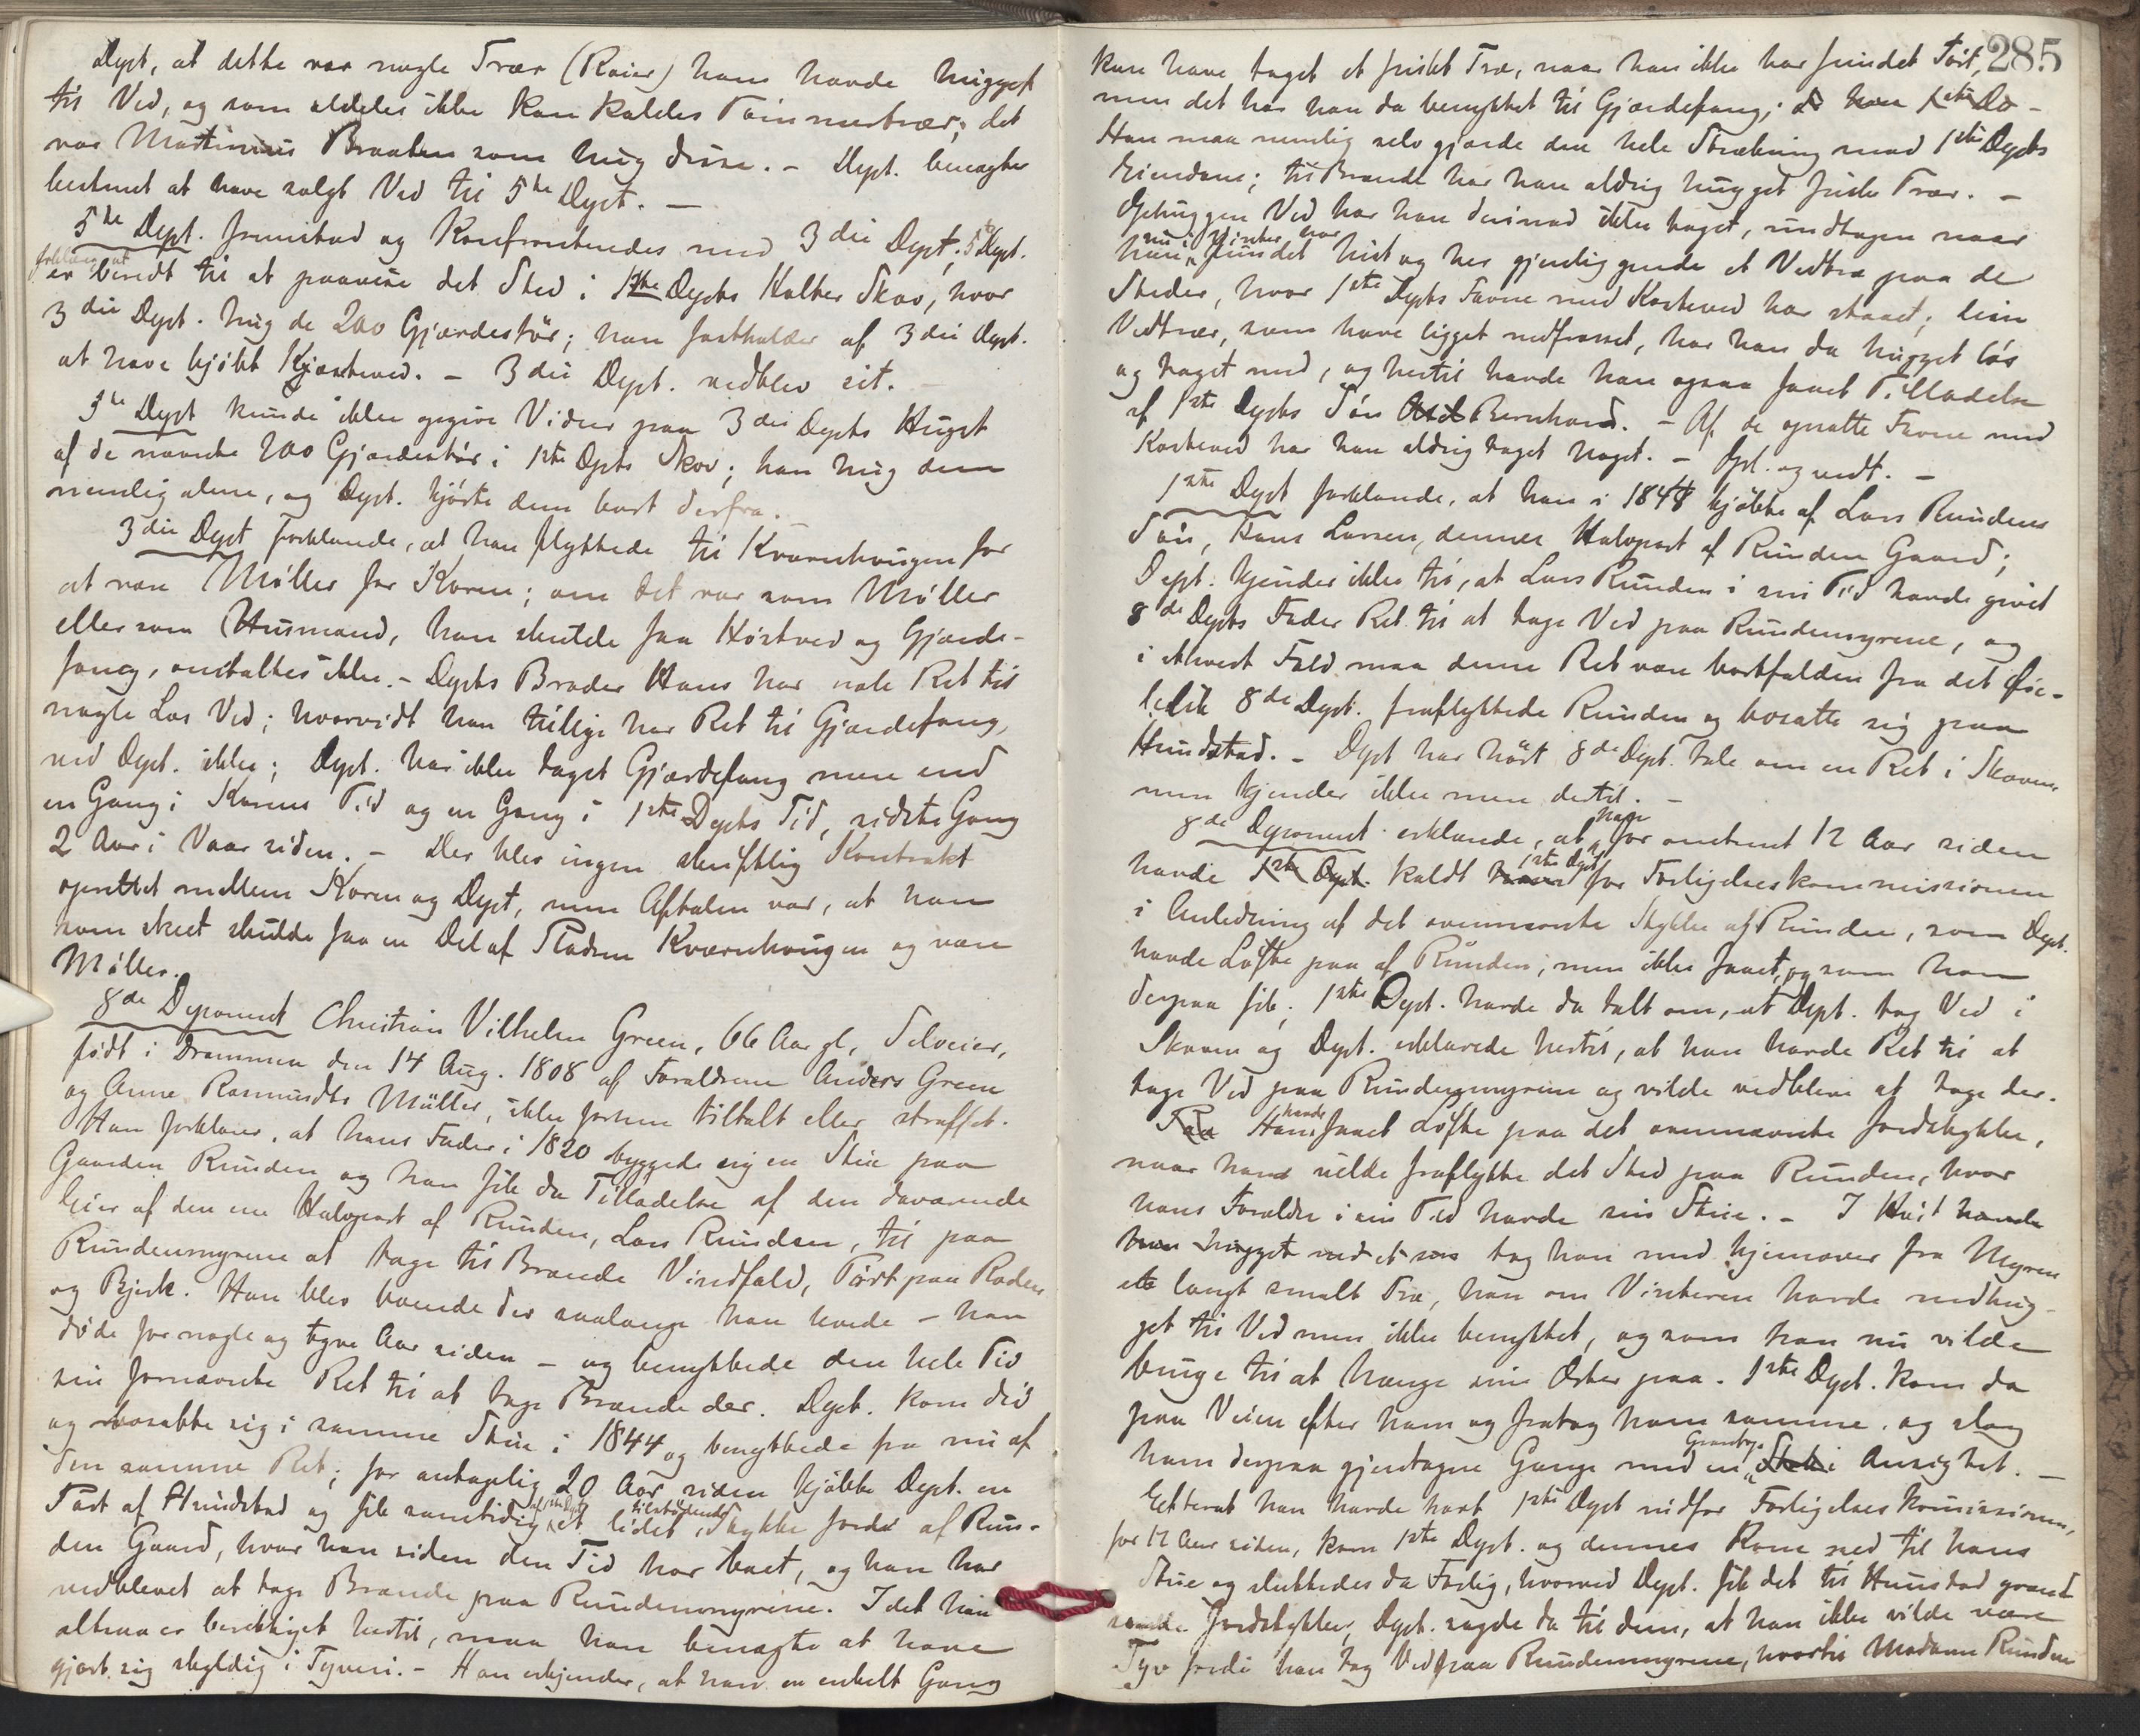 Dept, at dette var nogle Træer (Raier) han havde hugget
til Ved, og som aldeles ikke kan kaldes Tømmertræer; det
var Martinius Braaten som hug disse. - Dept. benægter
bestemt at have solgt Ved til 5te Dept. -
5te Dept. fremstod og konfronteredes med 3die Dept. 5te Dept.
forklarer at
er beredt til at paavise det Sted i 1ste Depts Kalter Skov, hvor
3die Dept. hug de 200 Gjærdestør; han fastholder af 3die Dept.
at have kjøbt Kjøsteved. - 3die Dept. vedblev sit. -
5te Dept kunde ikke opgive Vidner paa 3die Depts Hugst
af de nævnte 200 Gjærdestør i 1ste Depts Skov; han hug dem
nemlig alene, og Dept. kjørte dem bort derfra.
3die Dept forklarede, at han flyttede til Kværnhaugen for
at være Møller for Koren; om det var som Møller
eller som Husmand, han skulde faa Høstved og Gjærde-
fang, omtaltes ikke. - Depts Broder Hans har nok Ret til
nogle Læs Ved; hvorvidt han tillige har Ret til Gjærdefang,
ved Dept. ikke; Dept. har ikke taget Gjærdefang mere end
en Gang i Korens Tid og en Gang i 1ste Depts Tid, sidste Gang
2 Aar i Vaar siden. - Der blev ingen skriftlig Kontrakt
oprettet mellem Koren og Dept, men Aftalen var, at han
som skeet skulde faa en Del af Pladsen Kværnhaugen og være
Møller.
8de Deponent Christian Vilhelm Green, 66 Aar gl, Selveier,
født i Drammen den 14 Aug. 1808 af Forældrene Anders Green
og Anne Rasmusdtr Müller, ikke forhen tiltalt eller straffet.
Han forklarer, at hans Fader i 1820 byggede sig en Stue paa
Gaarden Runden og han fik da Tilladelse af den daværende
Eier af den ene Halvpart af Runden, Lars Runden, til paa
Rundenmyrene at tage til Brænde Vindfald, Tørt paa Roden
og Bjerk. Han blev boende der saalænge han levede - han
døde for nogle og tyve Aar siden - og benyttede den hele Tid
sin fornævnte Ret til at tage Brænde der. Dept. kom did
og bosatte sig i samme Stue i 1844 og benyttede fra nu af
den samme Ret; for antagelig 20 Aar siden kjøbte Dept. en
af 1ste Dept tilstødende
Part af Hundstad og fik samtidig et lidet Stykke Jorde af Run-
den Gaard, hvor han siden den Tid har boet, og han har
vedblevet at tage Brænde paa Rundenmyrene. Idet han
altsaa er berettiget hertil, maa han benægte at have
gjort sig skyldig i Tyveri. - Han erkjender, at han en enkelt Gang
285
kan have taget et friskt Træ, naar han ikke har fundet Tørt,
men det har han da benyttet til Gjærdefang; 
Han maa nemlig selv gjærde den hele Strækning mod 1ste Depts
Eiendom; til Brænde har han aldrig hugget friske Træer. -
Ophuggen Ved har han derimod ikke taget, undtagen naar
nu i Vinter har
han fundet hist og her gjenliggende et Vedtræ paa de
Steder, hvor 1ste Depts Favne med Kasteved har staaet; disse
Vedtræer, som have ligget nedfrosset, har han da hugget løs
og taget med, og hertil havde han ogsaa faaet Tilladelse
af 1ste Depts Søn Bernhard. - Af de opsatte Favne med
Kasteved har han aldrig taget noget. - Opl. og vedt. -
1ste Dept forklarede, at han i 1848 kjøbte af Lars Rundens
Søn, Hans Larsen, dennes Halvpart af Runden Gaard;
Dept. kjender ikke til, at Lars Runden i sin Tid havde givet
8de Depts Fader Ret til at tage Ved paa Rundenmyrene, og
i ethvert Fald maa denne Ret være bortfalden fra det Øie-
blik 8de Dept. fraflyttede Runden og bosatte sig paa
Hundstad. - Dept har hørt 8de Dept. tale om en Ret i Skoven,
men kjender ikke mere dertil. -
han
8de Deponent erklærede, at for omtrent 12 Aar siden
1ste Dept
havde 1ste Dept. kaldt for Forligelseskommissionen
i Anledning af det ovennævnte Stykke af Runden, som Dept.
havde Løfte paa af Runden; men ikke faaet, og som han
derpaa fik; 1ste Dept. havde da talt om, at Dept. tog Ved i
Skoven og Dept. erklærede hertil, at han havde Ret til at
tage Ved paa Rundenmyrene og vilde vedblive at tage der.
havde
Han faaet Løfte paa det ovennævnte Jordstykke,
naar han vilde fraflytte det Sted paa Runden, hvor
hans Forældre i sin Tid havde sin Stue. - I Høst havde
han hugget ved et tog han med hjemover fra Myren
et langt smalt Træ, han om Vinteren havde nedhug-
get til Ved men ikke benyttet, og som han nu vilde
bruge til at hænge sine Osker paa. 1ste Dept. kom da
paa Veien efter ham og fratog ham samme og slog
Granbog
ham derpaa gjentagne Gange med en i Ansigtet. -
Efterat han havde havt 1ste Dept indfor Forligelseskommissionen,
for 12 Aar siden, kom 1ste Dept. og dennes Kone ned til hans
Stue og sluttedes da Forlig, hvorved Dept. fik det til Hunstad grænd-
sende Jordstykke; Dept. sagde da til dem, at han ikke vilde være
Tyv fordi han tog Ved paa Rundenmyrene, hvortil Madam Runden